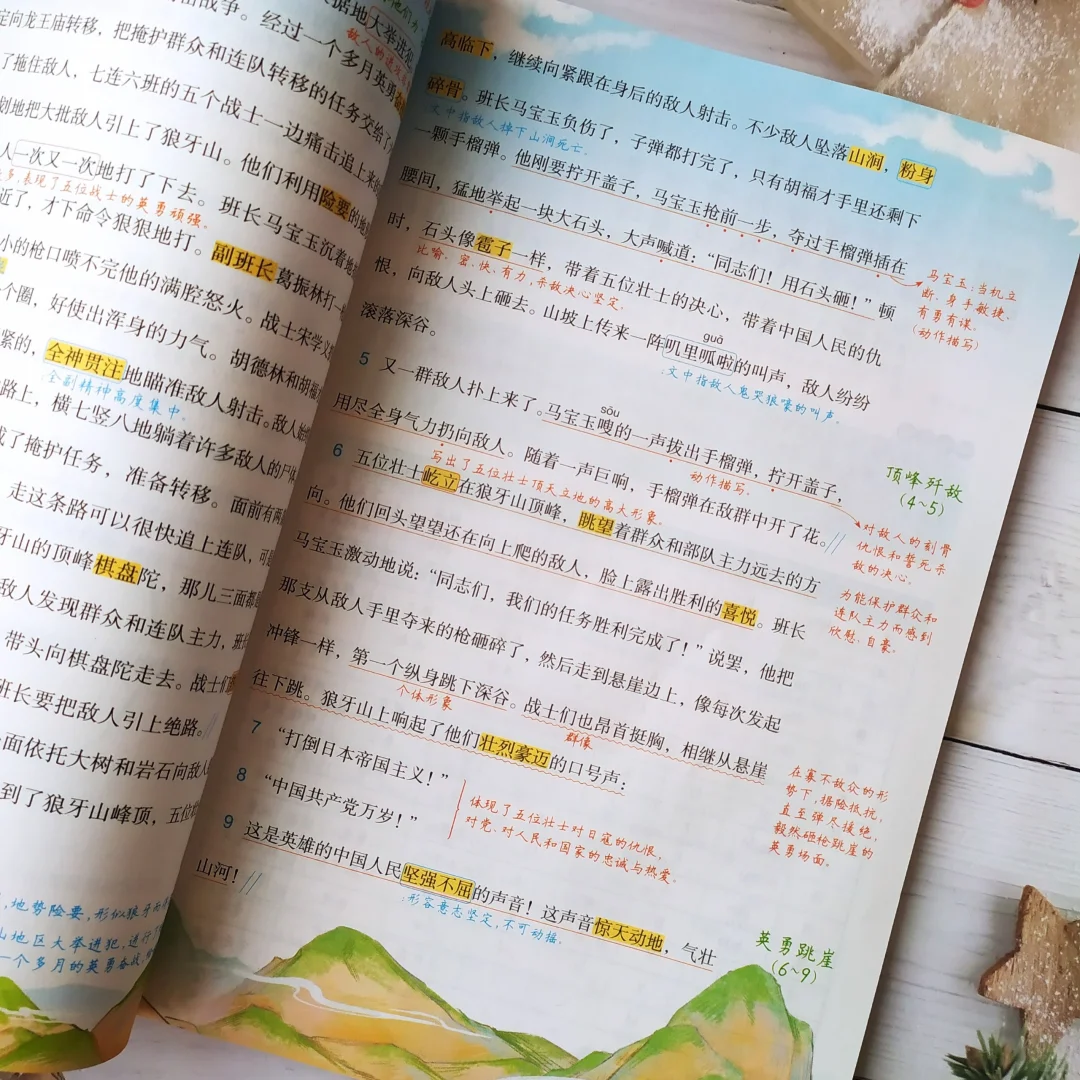 据地大举进犯
定向龙王庙转移，把掩护群众和连队转移的任务交给了
战争。经过一个多月英勇
了拖住敌人，七连六班的五个战士一边痛击追上来的
划地把大批敌人引上了狼牙山。他们利用险要的地
人一次又一次地打了下去。班长马宝玉沉着地
表现了五位战士的英勇顽强。
近了，才下命令狠狠地打。副班长葛振林打一
小的枪口喷不完他的满腔怒火。战士宋学义
个圈，好使出浑身的力气。胡德林和胡福
紧的，全神贯注地瞄准敌人射击。敌人始
全副精神高度集中。
路上，横七竖八地躺着许多敌人的尸体
成了掩护任务，准备转移。面前有两
走这条路可以很快追上连队，可是
牙山的顶峰棋盘陀，那儿三面都是
敌人发现群众和连队主力，班长
带头向棋盘陀走去。战士们
班长要把敌人引上绝路。
面依托大树和岩石向敌人
到了狼牙山峰顶，五位
，地势险要，形似狼牙而
山地区大举进犯，进行
一个多月的英勇奋战，
高临下，继续向紧跟在身后的敌人射击。不少敌人坠落山涧，粉身
碎骨。班长马宝玉负伤了，子弹都打完了，只有胡福才手里还剩下
文中指敌人掉下山涧死亡。
一颗手榴弹。他刚要拧开盖子，马宝玉抢前一步，夺过手榴弹插在
腰间，猛地举起一块大石头，大声喊道：“同志们！用石头砸！”顿
时，石头像雹子一样，带着五位壮士的决心，带着中国人民的仇
比喻、密、快、有力，杀敌决心坚定。
恨，向敌人头上砸去。山坡上传来一阵叽里呱啦的叫声，敌人纷纷
guā
：文中指敌人鬼哭狼嚎的叫声。
滚落深谷。
马宝玉：当机立
断、身手敏捷、
有勇有谋。
（动作描写）
5 又一群敌人扑上来了。马宝玉嗖的一声拔出手榴弹，拧开盖子，
sōu
动作描写。
用尽全身气力扔向敌人。随着一声巨响，手榴弹在敌群中开了花。
写出了五位壮士顶天立地的高大形象。
顶峰歼敌
（4~5）
对敌人的刻骨
仇恨和誓死杀
敌的决心。
6 五位壮士屹立在狼牙山顶峰，眺望着群众和部队主力远去的方
向。他们回头望望还在向上爬的敌人，脸上露出胜利的喜悦。班长
为能保护群众和
连队主力而感到
欣慰、自豪。
马宝玉激动地说：“同志们，我们的任务胜利完成了！”说罢，他把
那支从敌人手里夺来的枪砸碎了，然后走到悬崖边上，像每次发起
冲锋一样，第一个纵身跳下深谷。战士们也昂首挺胸，相继从悬崖
个体形象
群像
往下跳。狼牙山上响起了他们壮烈豪迈的口号声：
7 “打倒日本帝国主义！”
8 “中国共产党万岁！”
体现了五位壮士对日寇的仇恨，
对党、对人民和国家的忠诚与热爱。
在寡不敌众的形
势下，据险抵抗，
直至弹尽援绝，
毅然砸枪跳崖的
英勇场面。
9 这是英雄的中国人民坚强不屈的声音！这声音惊天动地，气壮
：形容意志坚定，不可动摇。
山河！
英勇跳崖
（6~9）